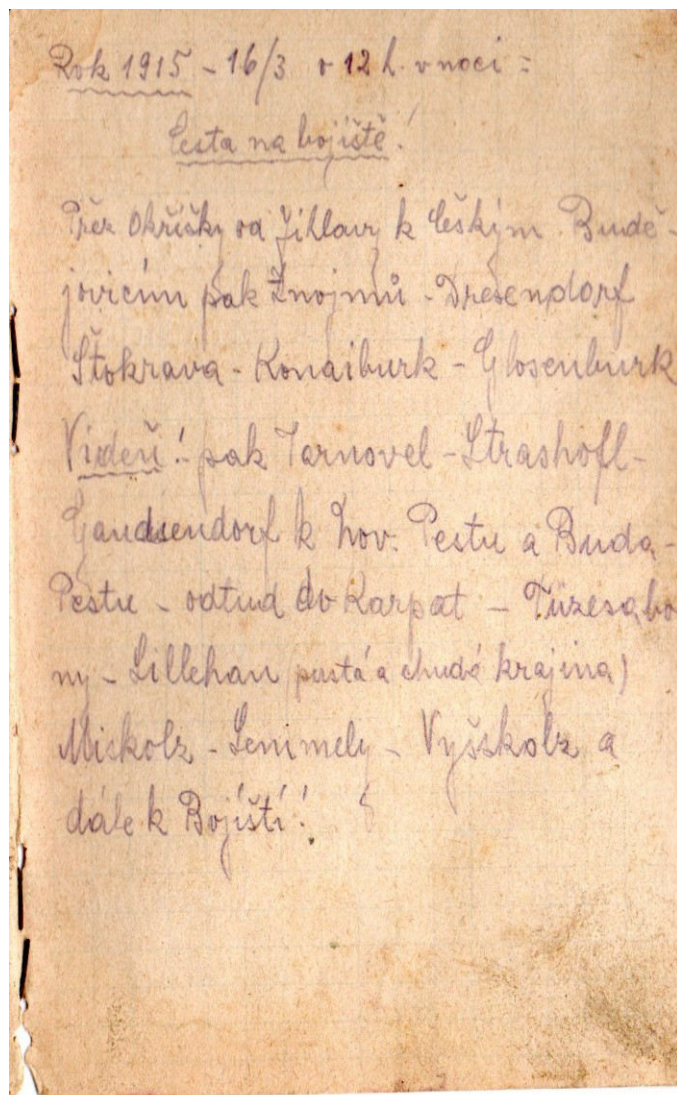 Rok 1915 - 16/3 v 12 h. v noci =
Cesta na bojiště!
Přez Okříšky od Jihlavy k Českým Budě-
jovicím pak Znojmů - Dresendorf
Štokrava - Konaiburk - Glosenburk
Videň! pak Tarnovel - Strashofl -
Gandsendorf k Nov. Pestu a Buda-
Pestu - odtud do Karpat - Tüzesabo
ny - Lillehan (pustá a chudá krajina)
Miskolz - Semmely - Vyškolz a
dále k Bojíští!